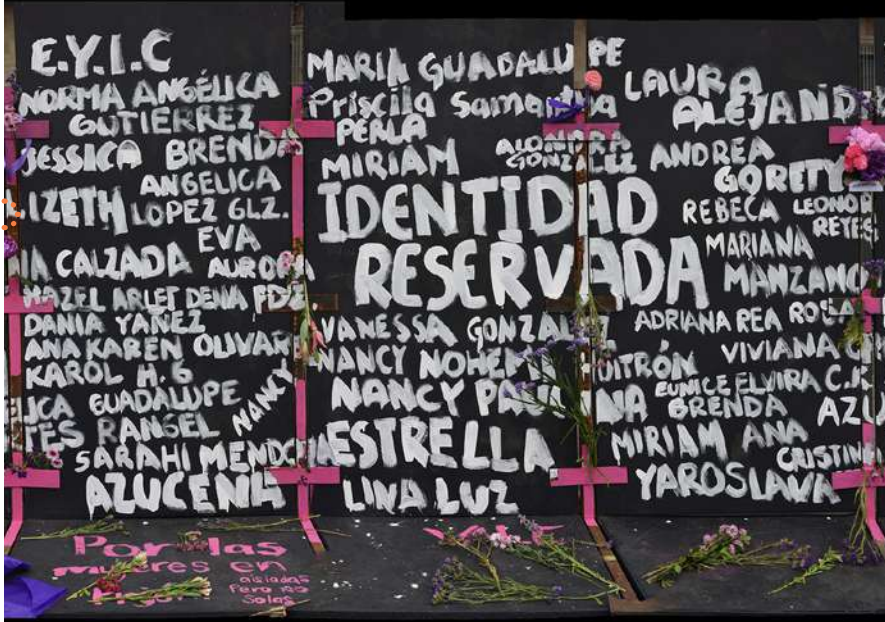 E.Y.I.C
NORMA ANGÉLICA
GUTIÉRREZ
JESSICA BRENDA
ANGELICA
LIZETH LOPEZ GLZ.
EVA
CALZADA AURORA
HAZEL ARLET DENA FDZ
DANIA YAÑEZ
ANA KAREN OLIVAR
KAROL H. G
GUADALUPE
NANCY
RANGEL
SARAHI MENDOZA
AZUCENA
MARIA GUADALUPE
Priscila Samantha
PERLA
ALONDRA
MIRIAM GONZALEZ
IDENTIDAD
RESERVADA
VANESSA GONZALEZ
NANCY NOHEMI
NANCY PAULINA
ESTRELLA
LINA LUZ
LAURA
ALEJAND
ANDREA
GORETY
REBECA LEONOR
REYES
MARIANA
MANZANO
ADRIANA REA ROSA
VIVIANA
EUNICE ELVIRA C.
BRENDA AZU
MIRIAM ANA
CRISTINA
YAROSLAVA
Por las
mujeres en
aisladas
Pero no
Solas